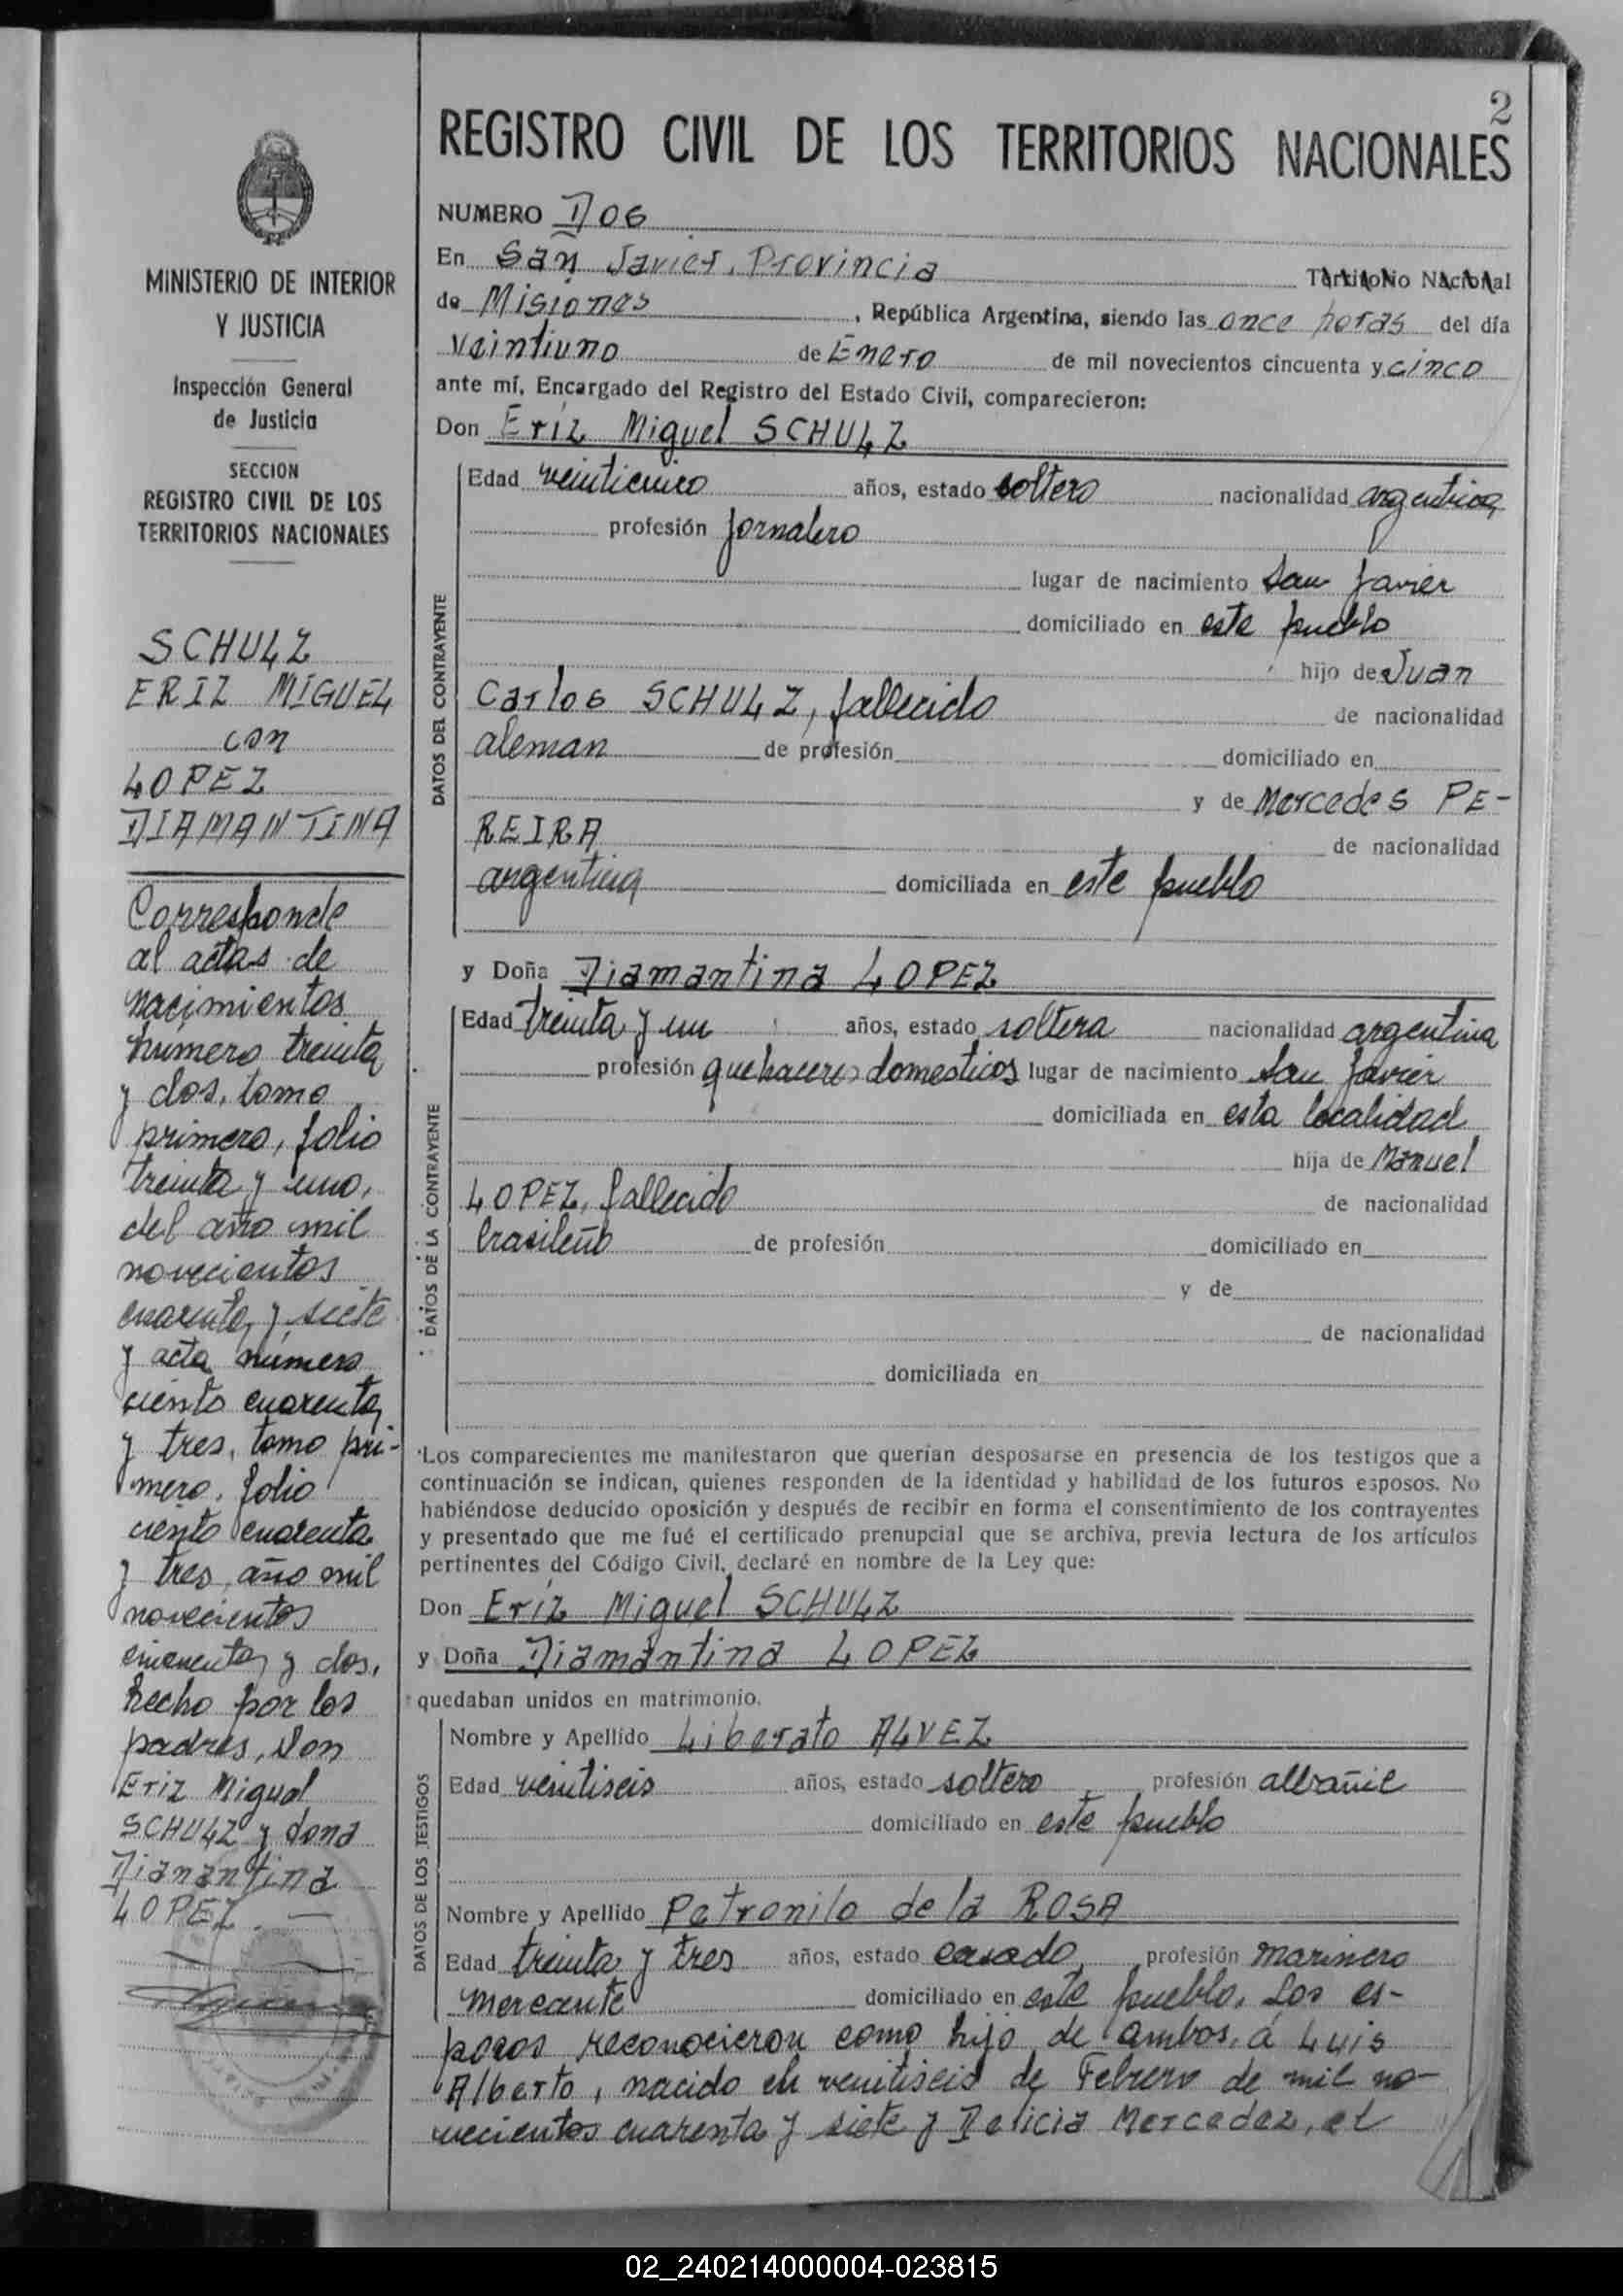 2
REGISTRO CIVIL DE LOS TERRITORIOS NACIONALES
MINISTERIO DE INTERIOR
Y JUSTICIA
Inspección General
de Justicia
SECCION
REGISTRO CIVIL DE LOS
TERRITORIOS NACIONALES
SCHULZ
ERIZ MIGUEL
con
LOPEZ
DIAMANTINA
Corresponde
al actas de
nacimientos
número treinta
y dos, tomo
primero, folio
treinta y uno,
del año mil
novecientos
cuarenta y siete
y acta número
ciento cuarenta
y tres, tomo pri-
mero, folio
ciento cuarenta
y tres, año mil
novecientos
cincuenta y dos,
hecho por los
padres, Don
Eriz Miguel
SCHULZ y dona
Diamantina
LOPEZ. —
NUMERO DOS
En San Javier, Provincia Territorio Nacional
de Misiones, República Argentina, siendo las once horas del día
veintiuno de Enero de mil novecientos cincuenta y cinco
ante mí, Encargado del Registro del Estado Civil, comparecieron:
Don Eríz Miguel SCHULZ
DATOS DEL CONTRAYENTE
Edad veinticinco años, estado soltero nacionalidad argentina
profesión jornalero
lugar de nacimiento San Javier
domiciliado en este pueblo
hijo de Juan
Carlos SCHULZ, fallecido de nacionalidad
aleman de profesión domiciliado en
y de Mercedes PE-
REIRA de nacionalidad
argentina domiciliada en este pueblo
y Doña Diamantina LOPEZ
DATOS DE LA CONTRAYENTE
Edad treinta y un años, estado soltera nacionalidad argentina
profesión quehaceres domesticos lugar de nacimiento San Javier
domiciliada en esta localidad
hija de Manuel
LOPEZ, fallecido de nacionalidad
brasileño de profesión domiciliado en
y de
de nacionalidad
domiciliada en
Los comparecientes me manifestaron que querían desposarse en presencia de los testigos que a
continuación se indican, quienes responden de la identidad y habilidad de los futuros esposos. No
habiéndose deducido oposición y después de recibir en forma el consentimiento de los contrayentes
y presentado que me fué el certificado prenupcial que se archiva, previa lectura de los artículos
pertinentes del Código Civil, declaré en nombre de la Ley que:
Don Eríz Miguel SCHULZ
y Doña Diamantina LOPEZ
quedaban unidos en matrimonio.
DATOS DE LOS TESTIGOS
Nombre y Apellido Liberato ALVEZ
Edad veintiseis años, estado soltero profesión albañil
domiciliado en este pueblo
Nombre y Apellido Petronilo de la ROSA
Edad treinta y tres años, estado casado, profesión marinero
mercante domiciliado en este pueblo. Los es-
posos reconocieron como hijo de ambos, a Luis
Alberto, nacido en veintiseis de Febrero de mil no-
vecientos cuarenta y siete y Delicia Mercedez, el
02_240214000004-023815